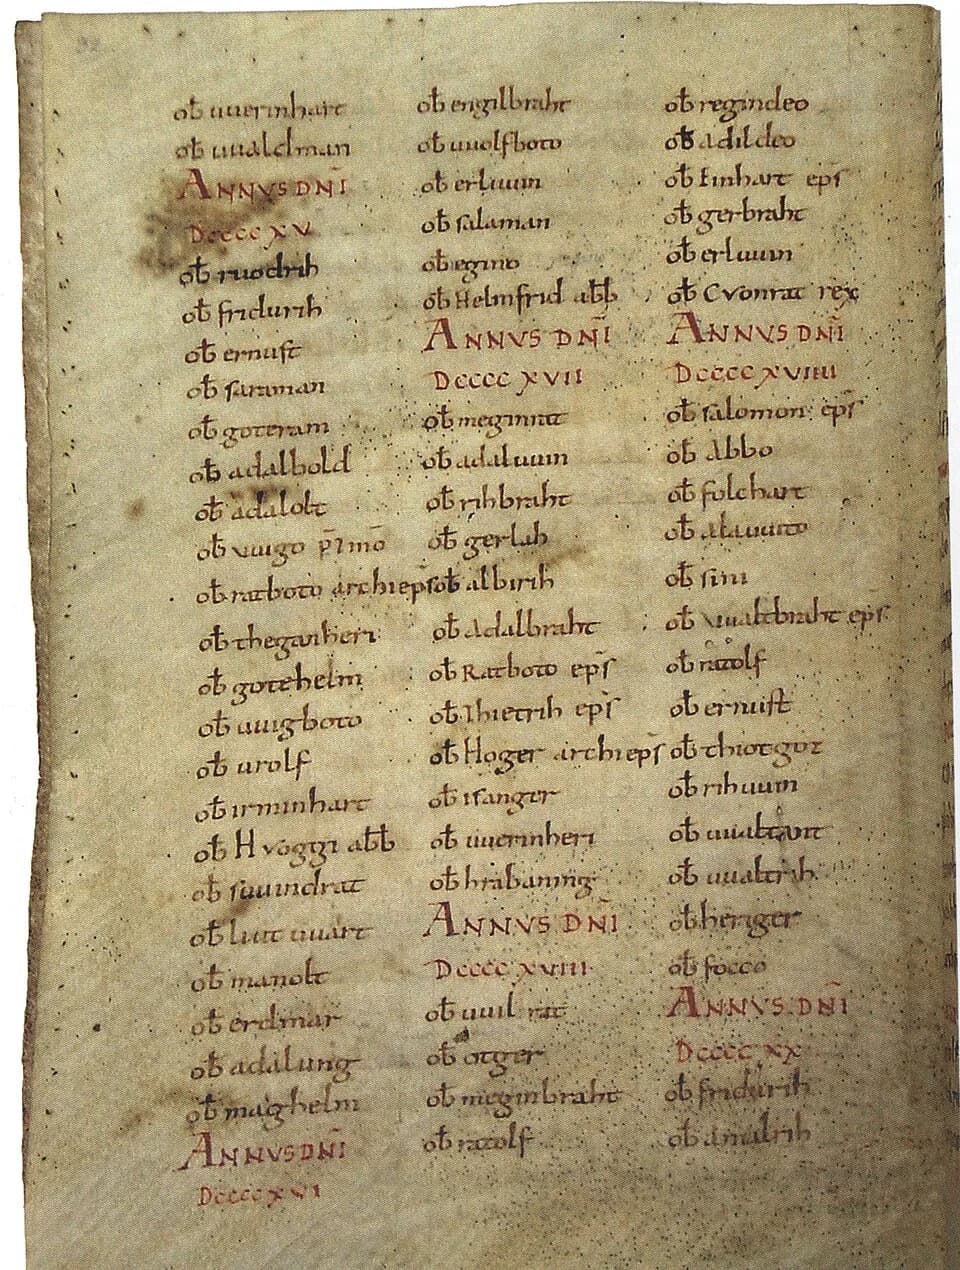 ob̄ uuerinhart
ob̄ uualdman
ANNVS DN̄I
DCCCCXV
ob̄ ruodrih
ob̄ fridurih
ob̄ ernust
ob̄ saraman
ob̄ goteram
ob̄ adalbold
ob̄ adalolt
ob̄ uuigo
ob̄ ratboto archiep̄s
ob̄ theganheri
ob̄ gotehelm
ob̄ uuigboto
ob̄ urolf
ob̄ irminhart
ob̄ Hvoggi ab̄b
ob̄ suuindrat
ob̄ liut uuart
ob̄ manolt
ob̄ erdmar
ob̄ adalung
ob̄ maghelm
ANNVS DN̄I
DCCCCXVI
ob̄ engilbraht
ob̄ uuolfboto
ob̄ erluuin
ob̄ salaman
ob̄ egino
ob̄ Helmfrid ab̄b
ANNVS DN̄I
DCCCCXVII
ob̄ meginrat
ob̄ adaluuin
ob̄ rihbraht
ob̄ gerlah
ob̄ albirih
ob̄ Adalbraht
ob̄ Ratboto ep̄s
ob̄ Thietrih ep̄s
ob̄ Hoger archiep̄s
ob̄ isanger
ob̄ uuerinheri
ob̄ hrabaning
ANNVS DN̄I
DCCCCXVIII
ob̄ uuil rat
ob̄ otger
ob̄ meginbraht
ob̄ ratolf
ob̄ regindeo
ob̄ Adildeo
ob̄ Einhart ep̄s
ob̄ gerbraht
ob̄ erluuin
ob̄ Cvonrat rex
ANNVS DN̄I
DCCCCXVIIII
ob̄ salomon ep̄s
ob̄ Abbo
ob̄ folchart
ob̄ alauuito
ob̄ sini
ob̄ uualtbraht ep̄s
ob̄ ratolf
ob̄ ernust
ob̄ thiotgoz
ob̄ rihuuin
ob̄
ob̄ uualtrih
ob̄ heriger
ob̄ focco
ANNVS DN̄I
DCCCCXX
ob̄ fridurih
ob̄ amalrih